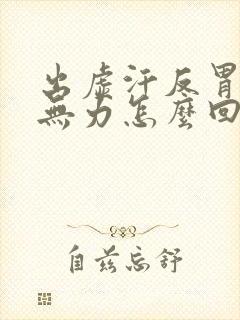 出虛汗反胃
無力怎麼回
自茲忘舒